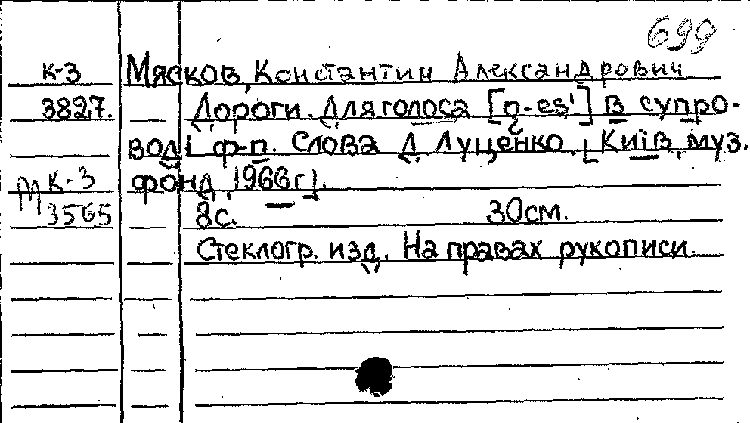 699
к-3 Мясков, Константин Александрович
3827. Дороги. Для голоса [g-es'] в супро-
воді ф-п. Слова Д. Луценко. [Київ, муз.
М к-3 фонд, 1966г].
3565 8с. 30см.
Стеклогр. изд. На правах рукописи.